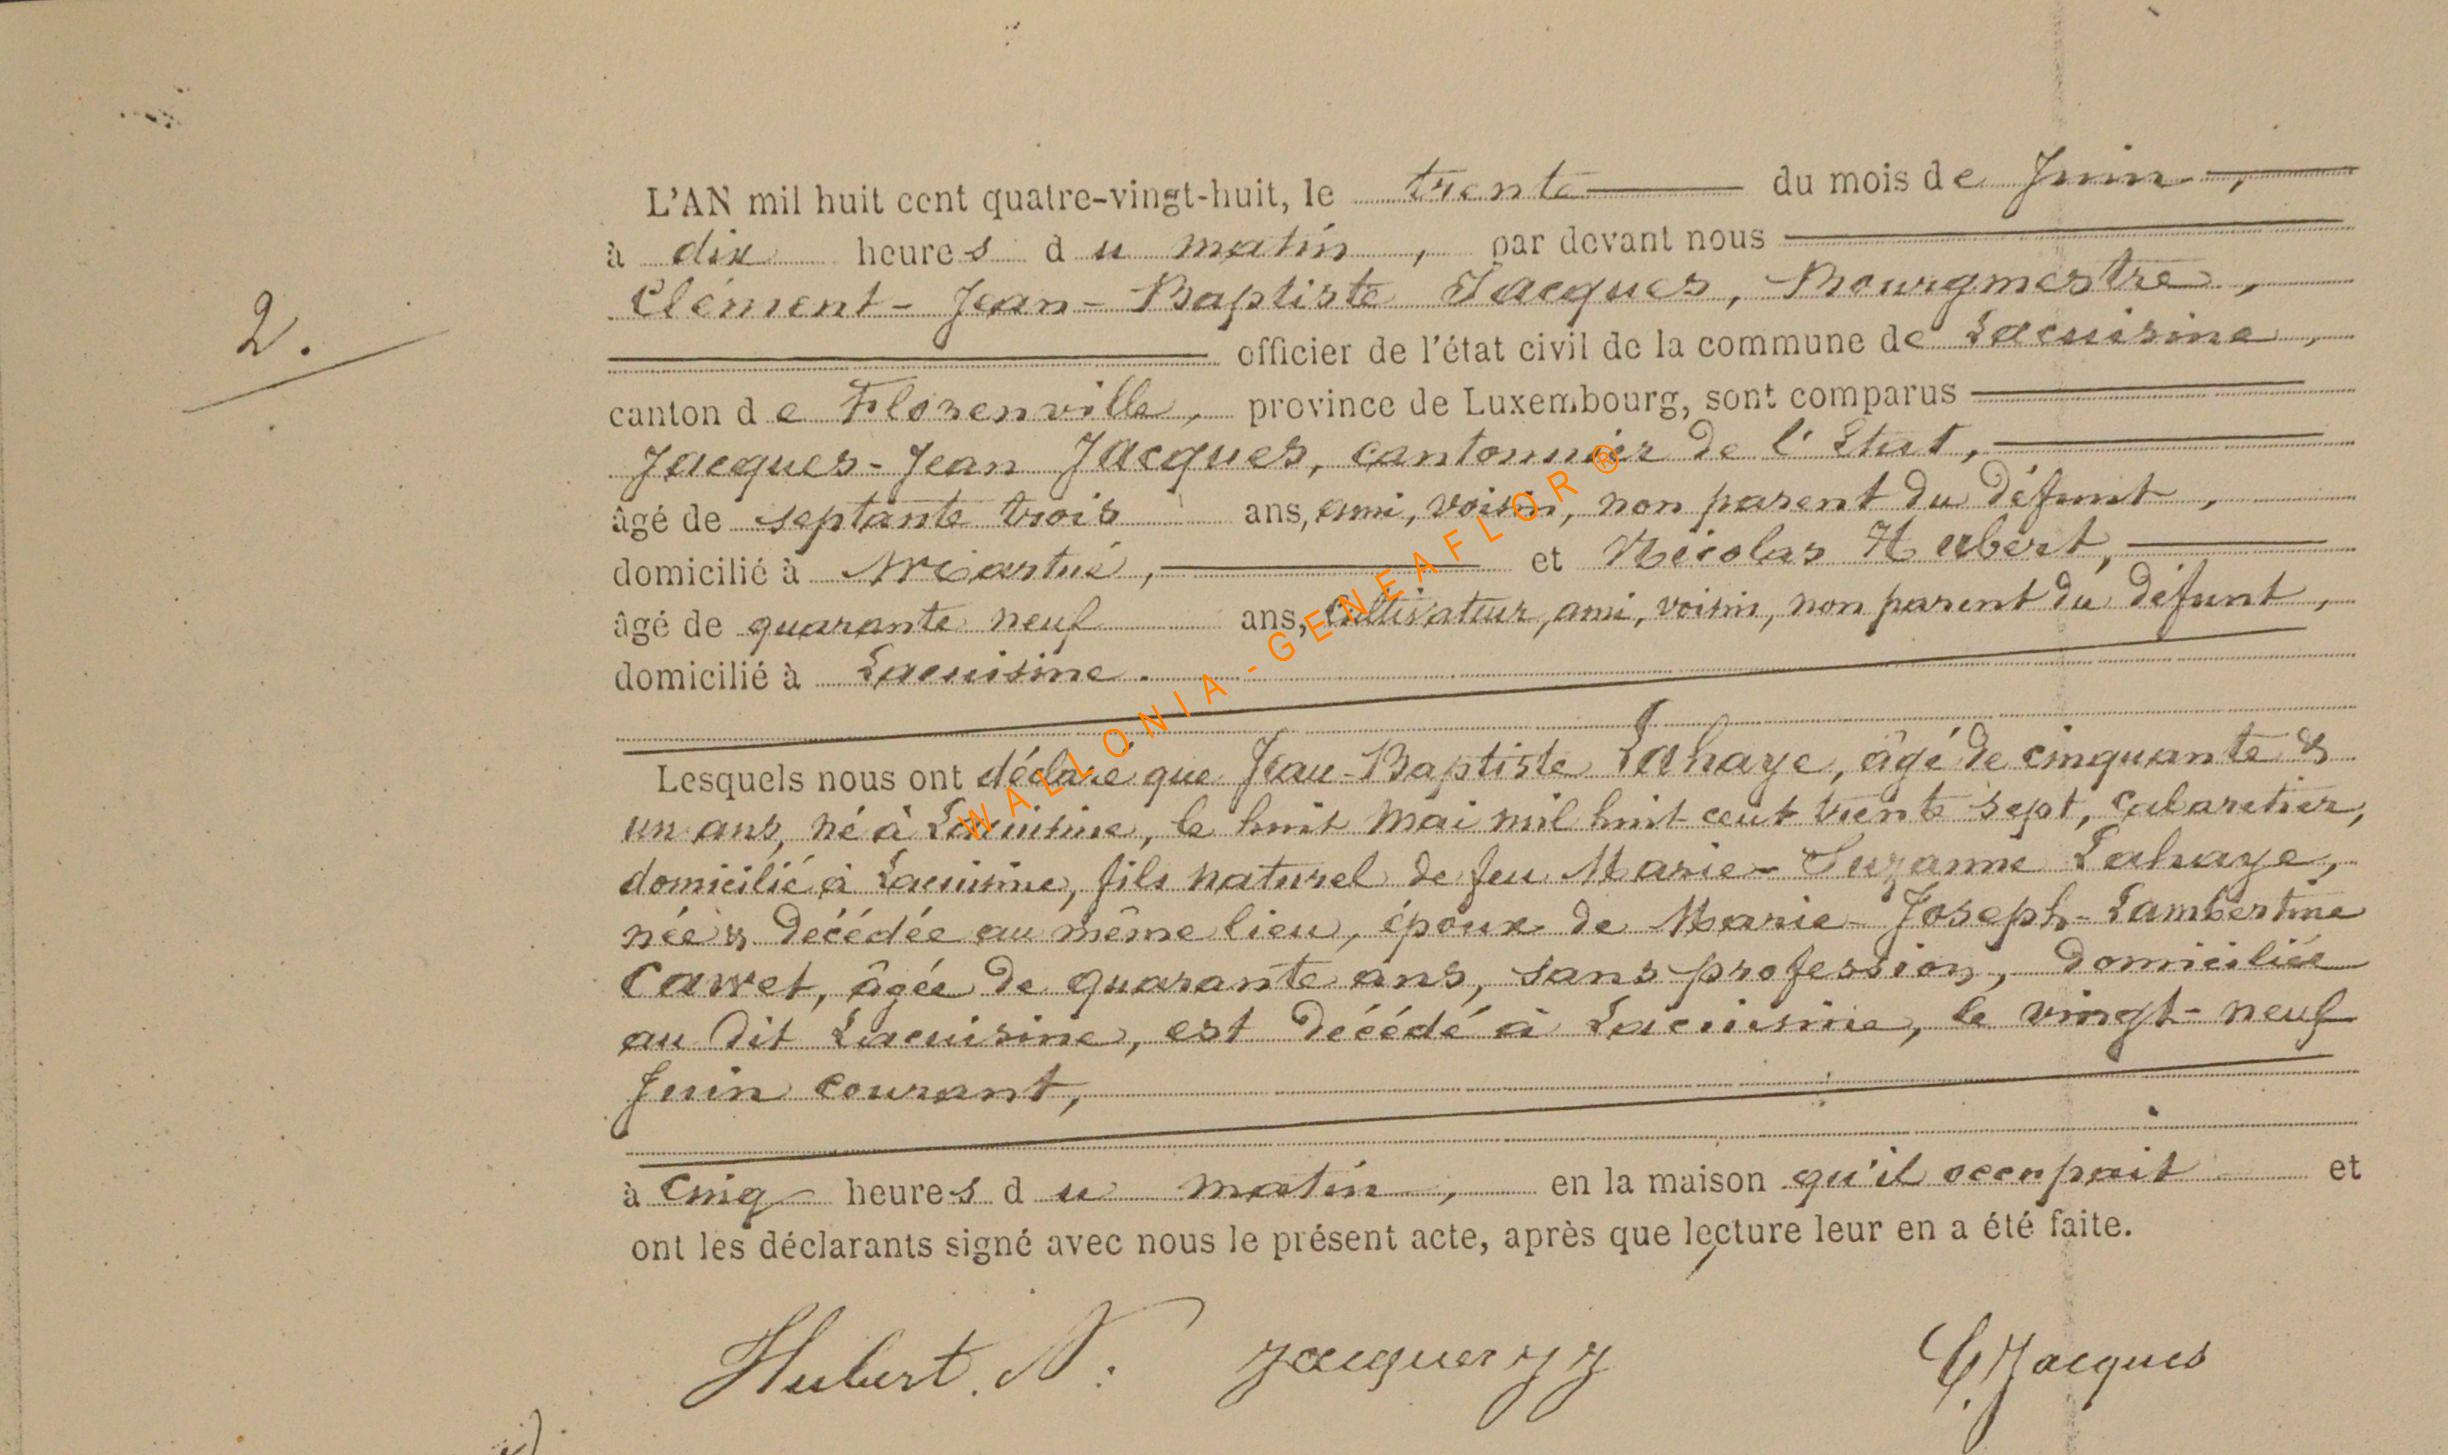 L'AN mil huit cent quatre-vingt-huit, le trente du mois de Juin,
à dix heures du matin, par devant nous
Clément-Jean-Baptiste Jacques, Bourgmestre,
2.
officier de l'état civil de la commune de Lacuisine,
canton de Florenville, province de Luxembourg, sont comparus
Jacques-Jean Jacques, cantonnier de l'Etat,
âgé de septante trois ans, ami, voisin, non parent du défunt,
domicilié à Martué, et Nicolas Hubert,
âgé de quarante neuf ans, Cultivateur, ami, voisin, non parent du défunt,
domicilié à Lacuisine.
Lesquels nous ont déclaré que Jean-Baptiste Lahaye, âgé de cinquante &
un ans, né à Lacuisine, le huit Mai mil huit cent trente sept, cabaretier,
domicilié à Lacuisine, fils naturel de feu Marie-Suzanne Lahaye,
née & décédée au même lieu, époux de Marie-Joseph-Lambertine
Cawet, âgée de quarante ans, sans profession, domiciliée
au dit Lacuisine, est décédé à Lacuisine, le vingt-neuf
Juin courant,
à cinq heures du matin, en la maison qu'il occupait et
ont les déclarants signé avec nous le présent acte, après que lecture leur en a été faite.
Hubert. N. Jacques JJ C. Jacques
WALLONIA-GENEAFLOR®